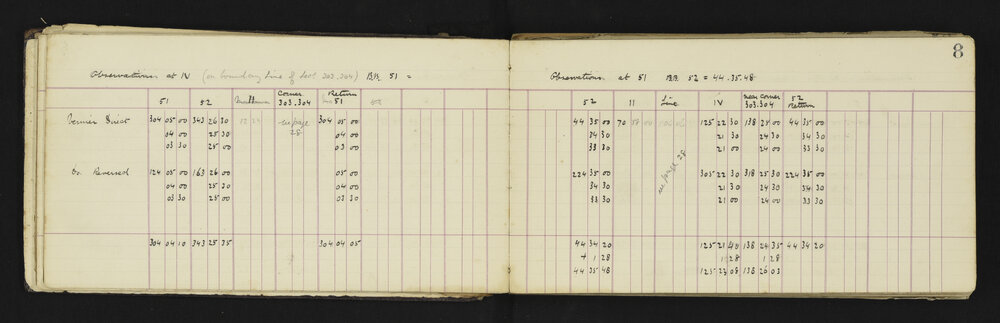 8
Observations at IV (on boundary line of Sect 303.304) BB. 51 =
51 52 Corner 303.304 Return 51 52
Vernier Direct 304 05 00 343 26 30 see page 28 304 05 00
04 00 25 30 04 00
03 30 25 00 03 00
Do Reversed 124 05 00 163 26 00 05 00
04 00 25 30 04 00
03 30 25 00 03 30
304 04 10 343 25 35 304 04 05
Observations at 51 BB. 52 = 44.35.48
52 11 Line IV near Corner 303.304 52 Return
44 35 00 70 125 22 30 138 25 00 44 35 00
34 30 21 30 24 30 34 30
33 30 21 00 24 00 33 30
see page 28
224 35 00 305 22 30 318 25 30 224 35 00
34 30 21 30 24 30 34 30
33 30 21 00 24 00 33 30
44 34 20 125 21 40 138 24 35 44 34 20
+ 1 28 1 28 1 28
44 35 48 125 23 08 138 26 03